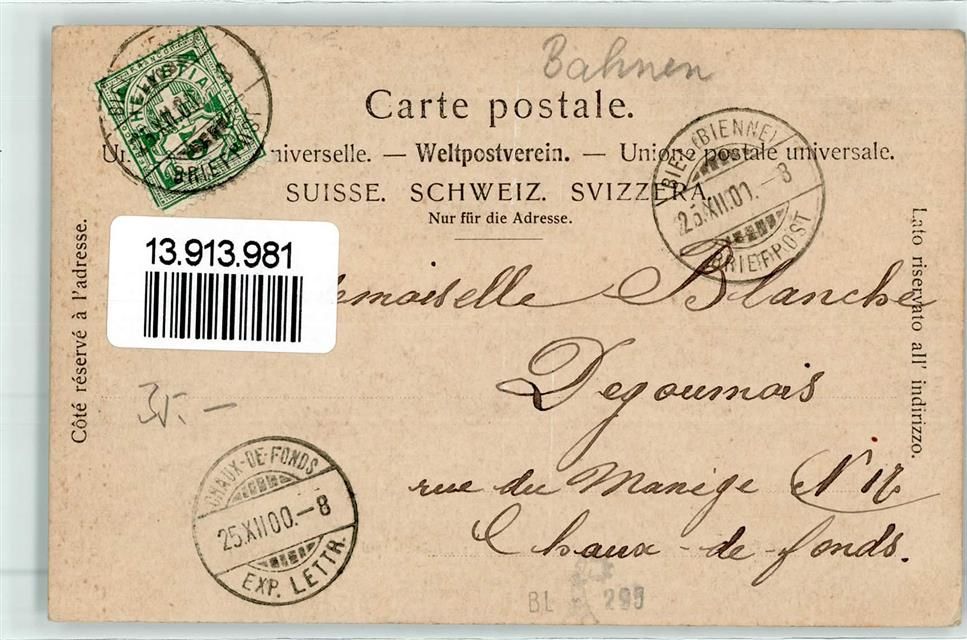 Bahnen
Carte postale.
universelle. — Weltpostverein. — Unione postale universale.
SUISSE. SCHWEIZ. SVIZZERA.
Nur für die Adresse.
HELVETIA
BRIEF
BIEL (BIENNE)
XII.00.–8
BRIEFPOST
13.913.981
Côté réservé à l'adresse.
Lato riservato all' indirizzo.
Blanche
Degoumois
rue du Manège N
Chaux-de-fonds.
35.–
CHAUX-DE-FONDS
25.XII.00.–8
EXP. LETTR.
BL 299